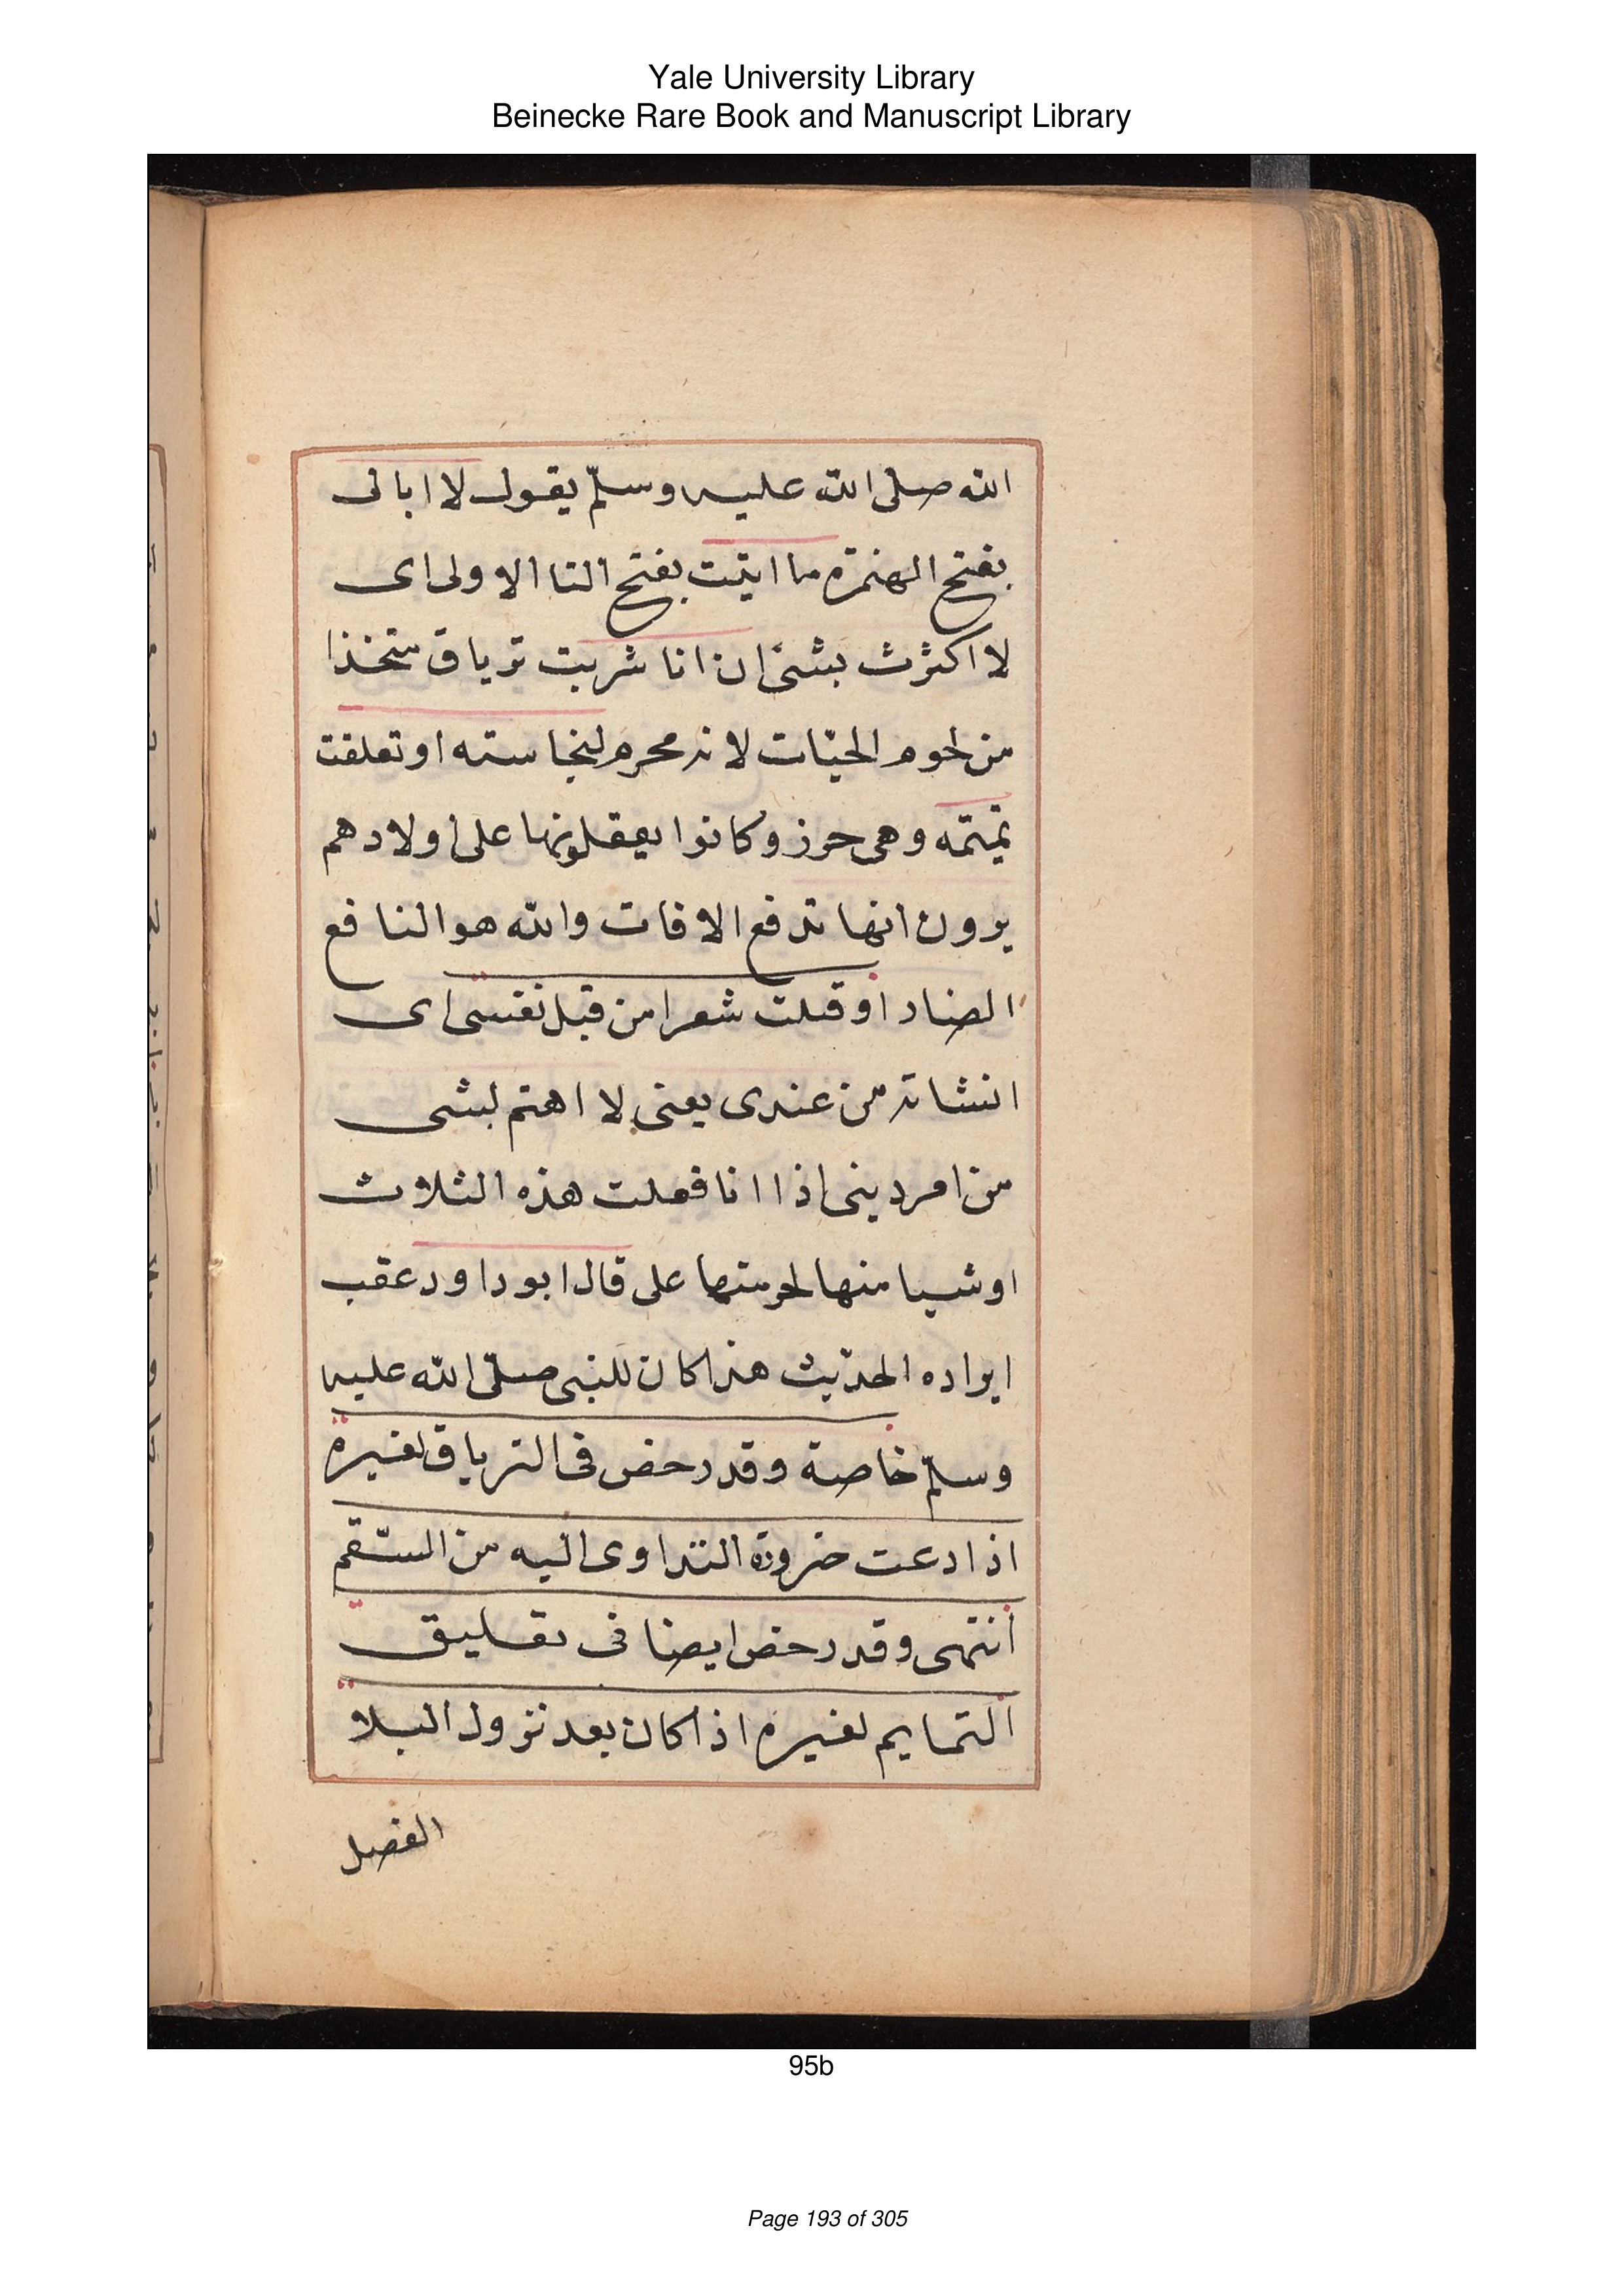 Yale University Library
Beinecke Rare Book and Manuscript Library
الله صلى الله عليه وسلّم يقول لا ابالى
بفتح الهمزة ما اتيت بفتح التا الاولى اى
لا اكترث بشئ ان انا شربت ترياق متخذا
من لحوم الحيّات لانه محرم لنجاسته او تعلقت
تميمه وهى حرز وكانوا يعقلونها على اولادهم
يرون انها تدفع الافات والله هو النافع
الضار او قلت شعرا من قبل نفسى اى
انشاته من عندى يعنى لا اهتم لشى
من امر دينى اذا انا فعلت هذه الثلاث
او شيا منها لحرمتها على قال ابو داود عقب
ايراده الحديث هذا كان للنبى صلّى الله عليه
وسلّم خاصة وقد رخص فى الترياق لغيره
اذا دعت ضرورة التداوى اليه من السّقم
انتهى وقد رخص ايضا فى تعليق
التمايم لغيره اذا كان بعد نزول البلا
الفصل
95b
Page 193 of 305